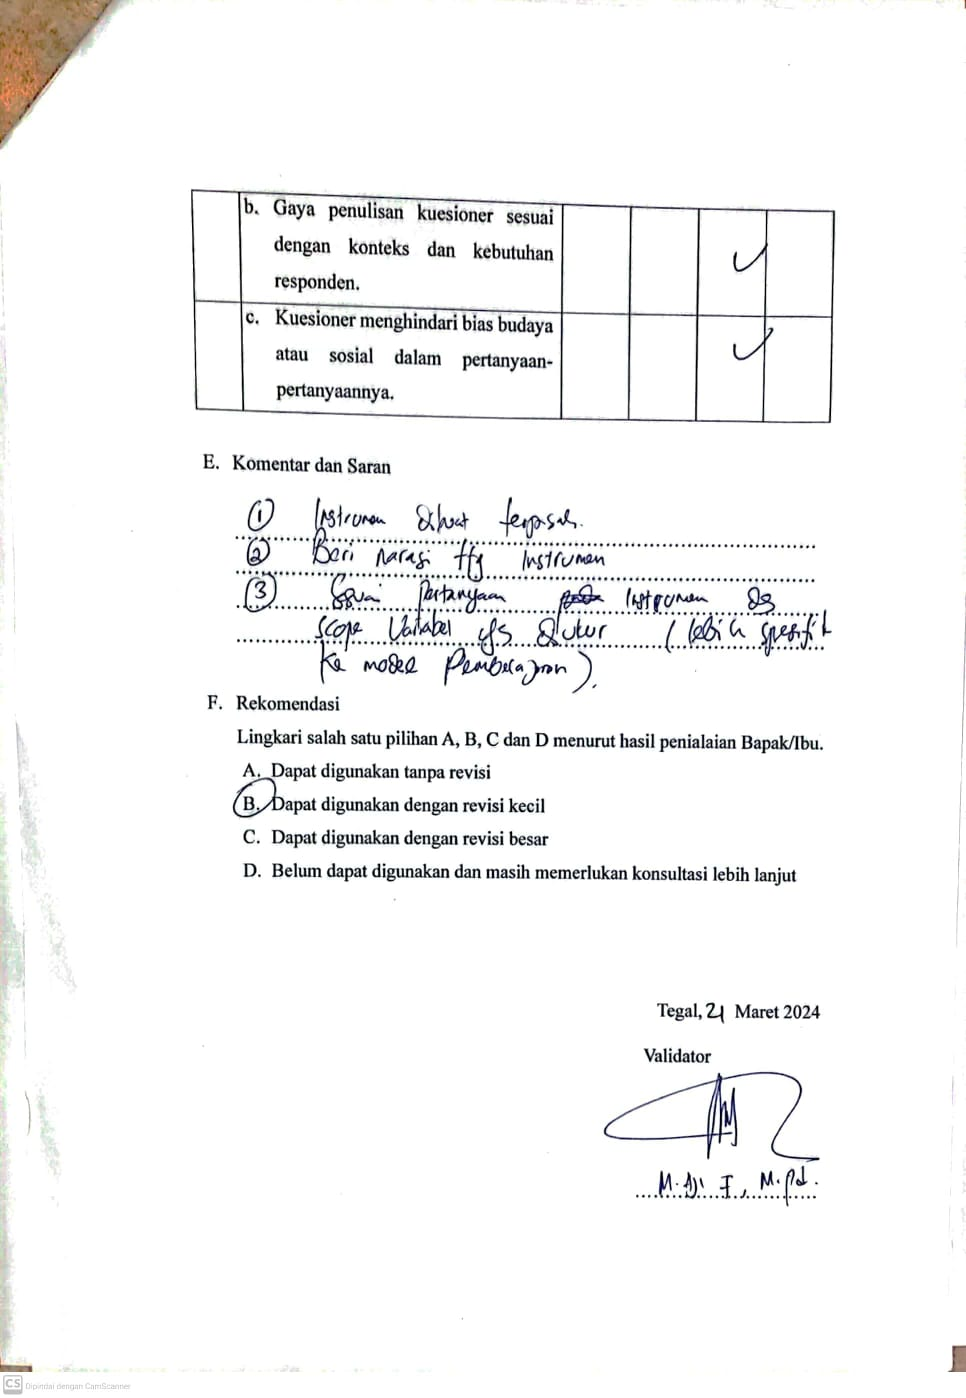 b. Gaya penulisan kuesioner sesuai
dengan konteks dan kebutuhan
responden.
c. Kuesioner menghindari bias budaya
atau sosial dalam pertanyaan-
pertanyaannya.
E. Komentar dan Saran
① Instrumen dibuat terpisah.
② Beri narasi ttg Instrumen
③ Sesuai Pertanyaan Instrumen dg
scope Variabel yg diukur (lebih spesifik
ke model Pembelajaran).
F. Rekomendasi
Lingkari salah satu pilihan A, B, C dan D menurut hasil penialaian Bapak/Ibu.
A. Dapat digunakan tanpa revisi
B. Dapat digunakan dengan revisi kecil
C. Dapat digunakan dengan revisi besar
D. Belum dapat digunakan dan masih memerlukan konsultasi lebih lanjut
Tegal, 21 Maret 2024
Validator
M. Aji F., M.Pd.
CS Dipindai dengan CamScanner